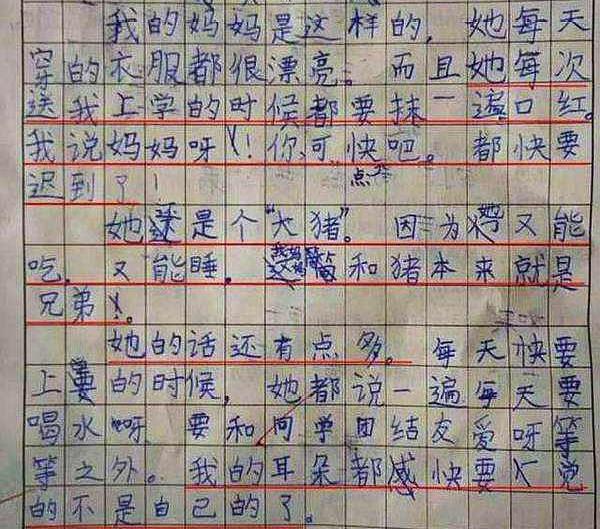 我的妈妈是这样的，她每天
穿的衣服都很漂亮。而且她每次
送我上学的时候都要抹一遍口红。
我说妈妈呀！你可快点吧。都快要
迟到了！
她还是个“大猪”。因为她又能
吃，又能睡。我妈和猪本来就是
兄弟。
她的话还有点多。每天快要
上学的时候，她都说一遍每天要
喝水呀要和同学团结友爱呀等
等之外。我的耳朵都感快要觉
的不是自己的了。